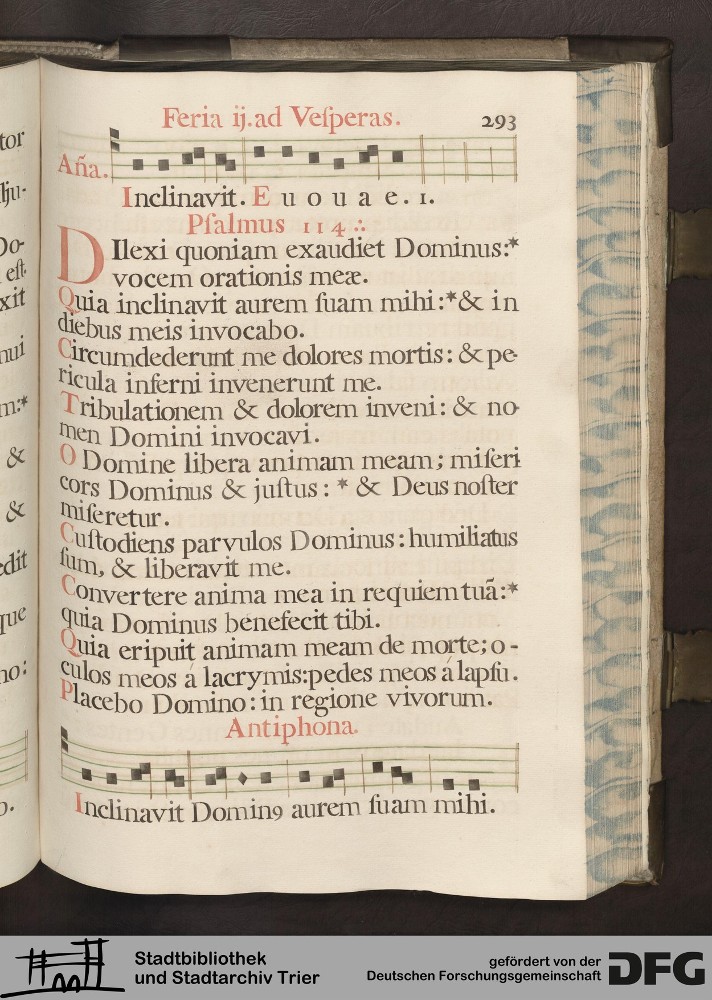 Feria ij. ad Veſperas.
293
Aña.
Inclinavit. E u o u a e. 1.
Pſalmus 114.
DIlexi quoniam exaudiet Dominus:*
vocem orationis meæ.
Quia inclinavit aurem ſuam mihi:*& in
diebus meis invocabo.
Circumdederunt me dolores mortis: & pe-
ricula inferni invenerunt me.
Tribulationem & dolorem inveni: & no-
men Domini invocavi.
O Domine libera animam meam; miſeri
cors Dominus & juſtus: * & Deus noſter
miſeretur.
Cuſtodiens parvulos Dominus: humiliatus
ſum, & liberavit me.
Convertere anima mea in requiem tuã:*
quia Dominus benefecit tibi.
Quia eripuit animam meam de morte; o-
culos meos á lacrymis: pedes meos á lapſu.
Placebo Domino: in regione vivorum.
Antiphona.
Inclinavit Dominꝰ aurem ſuam mihi.
tor
Do-
eſt
xit
nui
m:*
&
&
edit
que
no:
o.
Stadtbibliothek
und Stadtarchiv Trier
gefördert von der
Deutschen Forschungsgemeinschaft
DFG